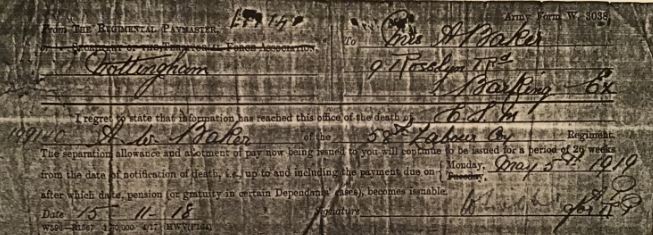 Army Form W. 3038.
From THE REGIMENTAL PAYMASTER,
To Mrs A Baker
or SECRETARY OF THE TERRITORIAL FORCE ASSOCIATION.
Nottingham
9 Roselyn Rd
Barking Ex
I regret to state that information has reached this office of the death of C.S.M
A W Baker of the 58th Labour Coy Regiment.
The separation allowance and allotment of pay now being issued to you will continue to be issued for a period of 26 weeks
from the date of notification of death, i.e., up to and including the payment due on Monday, Tuesday, May 5th 1919
after which date, pension (or gratuity in certain Dependants' cases), becomes issuable.
Date 15 - 11 - 18 Signature for R P